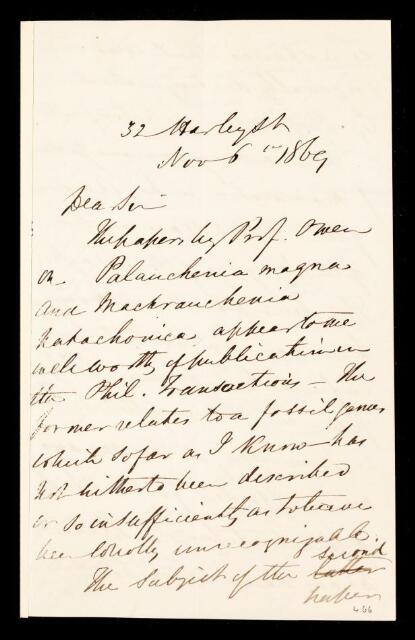 32 Harley St
Nov 6th 1869
Dear Sir
The papers by Prof. Owen
on Palauchenia magna
and Mackrauchenia
Patachonica appear to me
well worthy of publication in
the Phil. Transactions — The
former relates to a fossil genus
which so far as I know has
not hitherto been described
or so insufficiently as to have
been wholly unrecognizable.
The subject of the latter second
paper
466